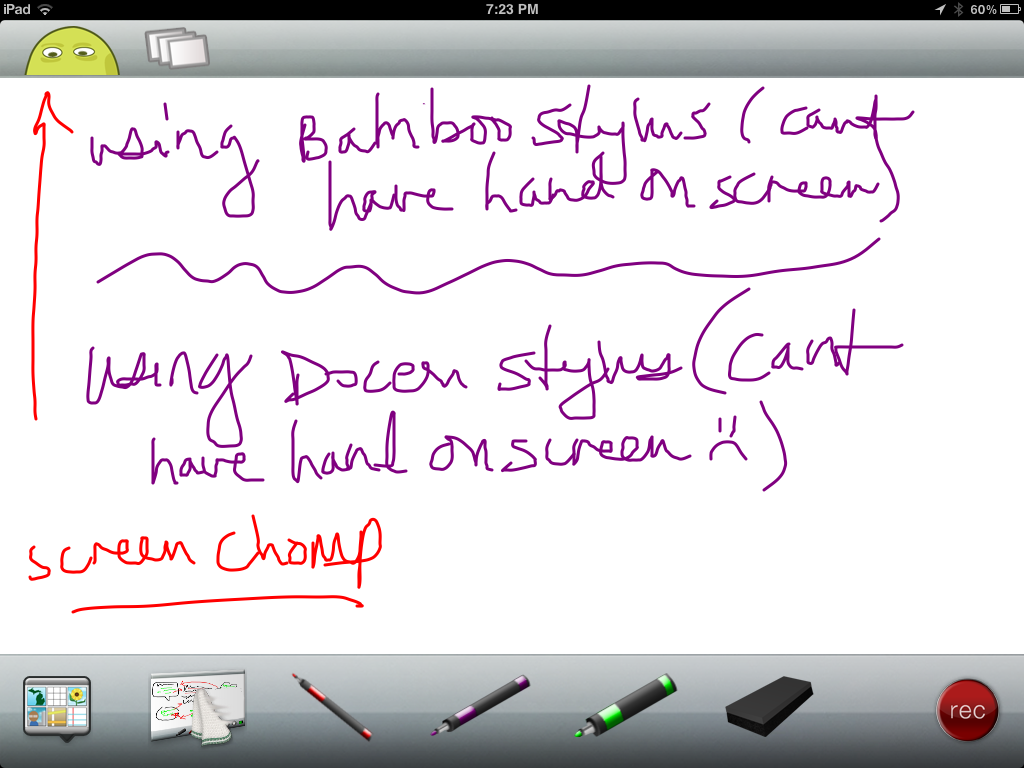 iPad 7:23 PM 60%
using Bamboo stylus (cant
have hand on screen)
using Docen stylus (cant
have hand on screen :()
screen chomp
rec